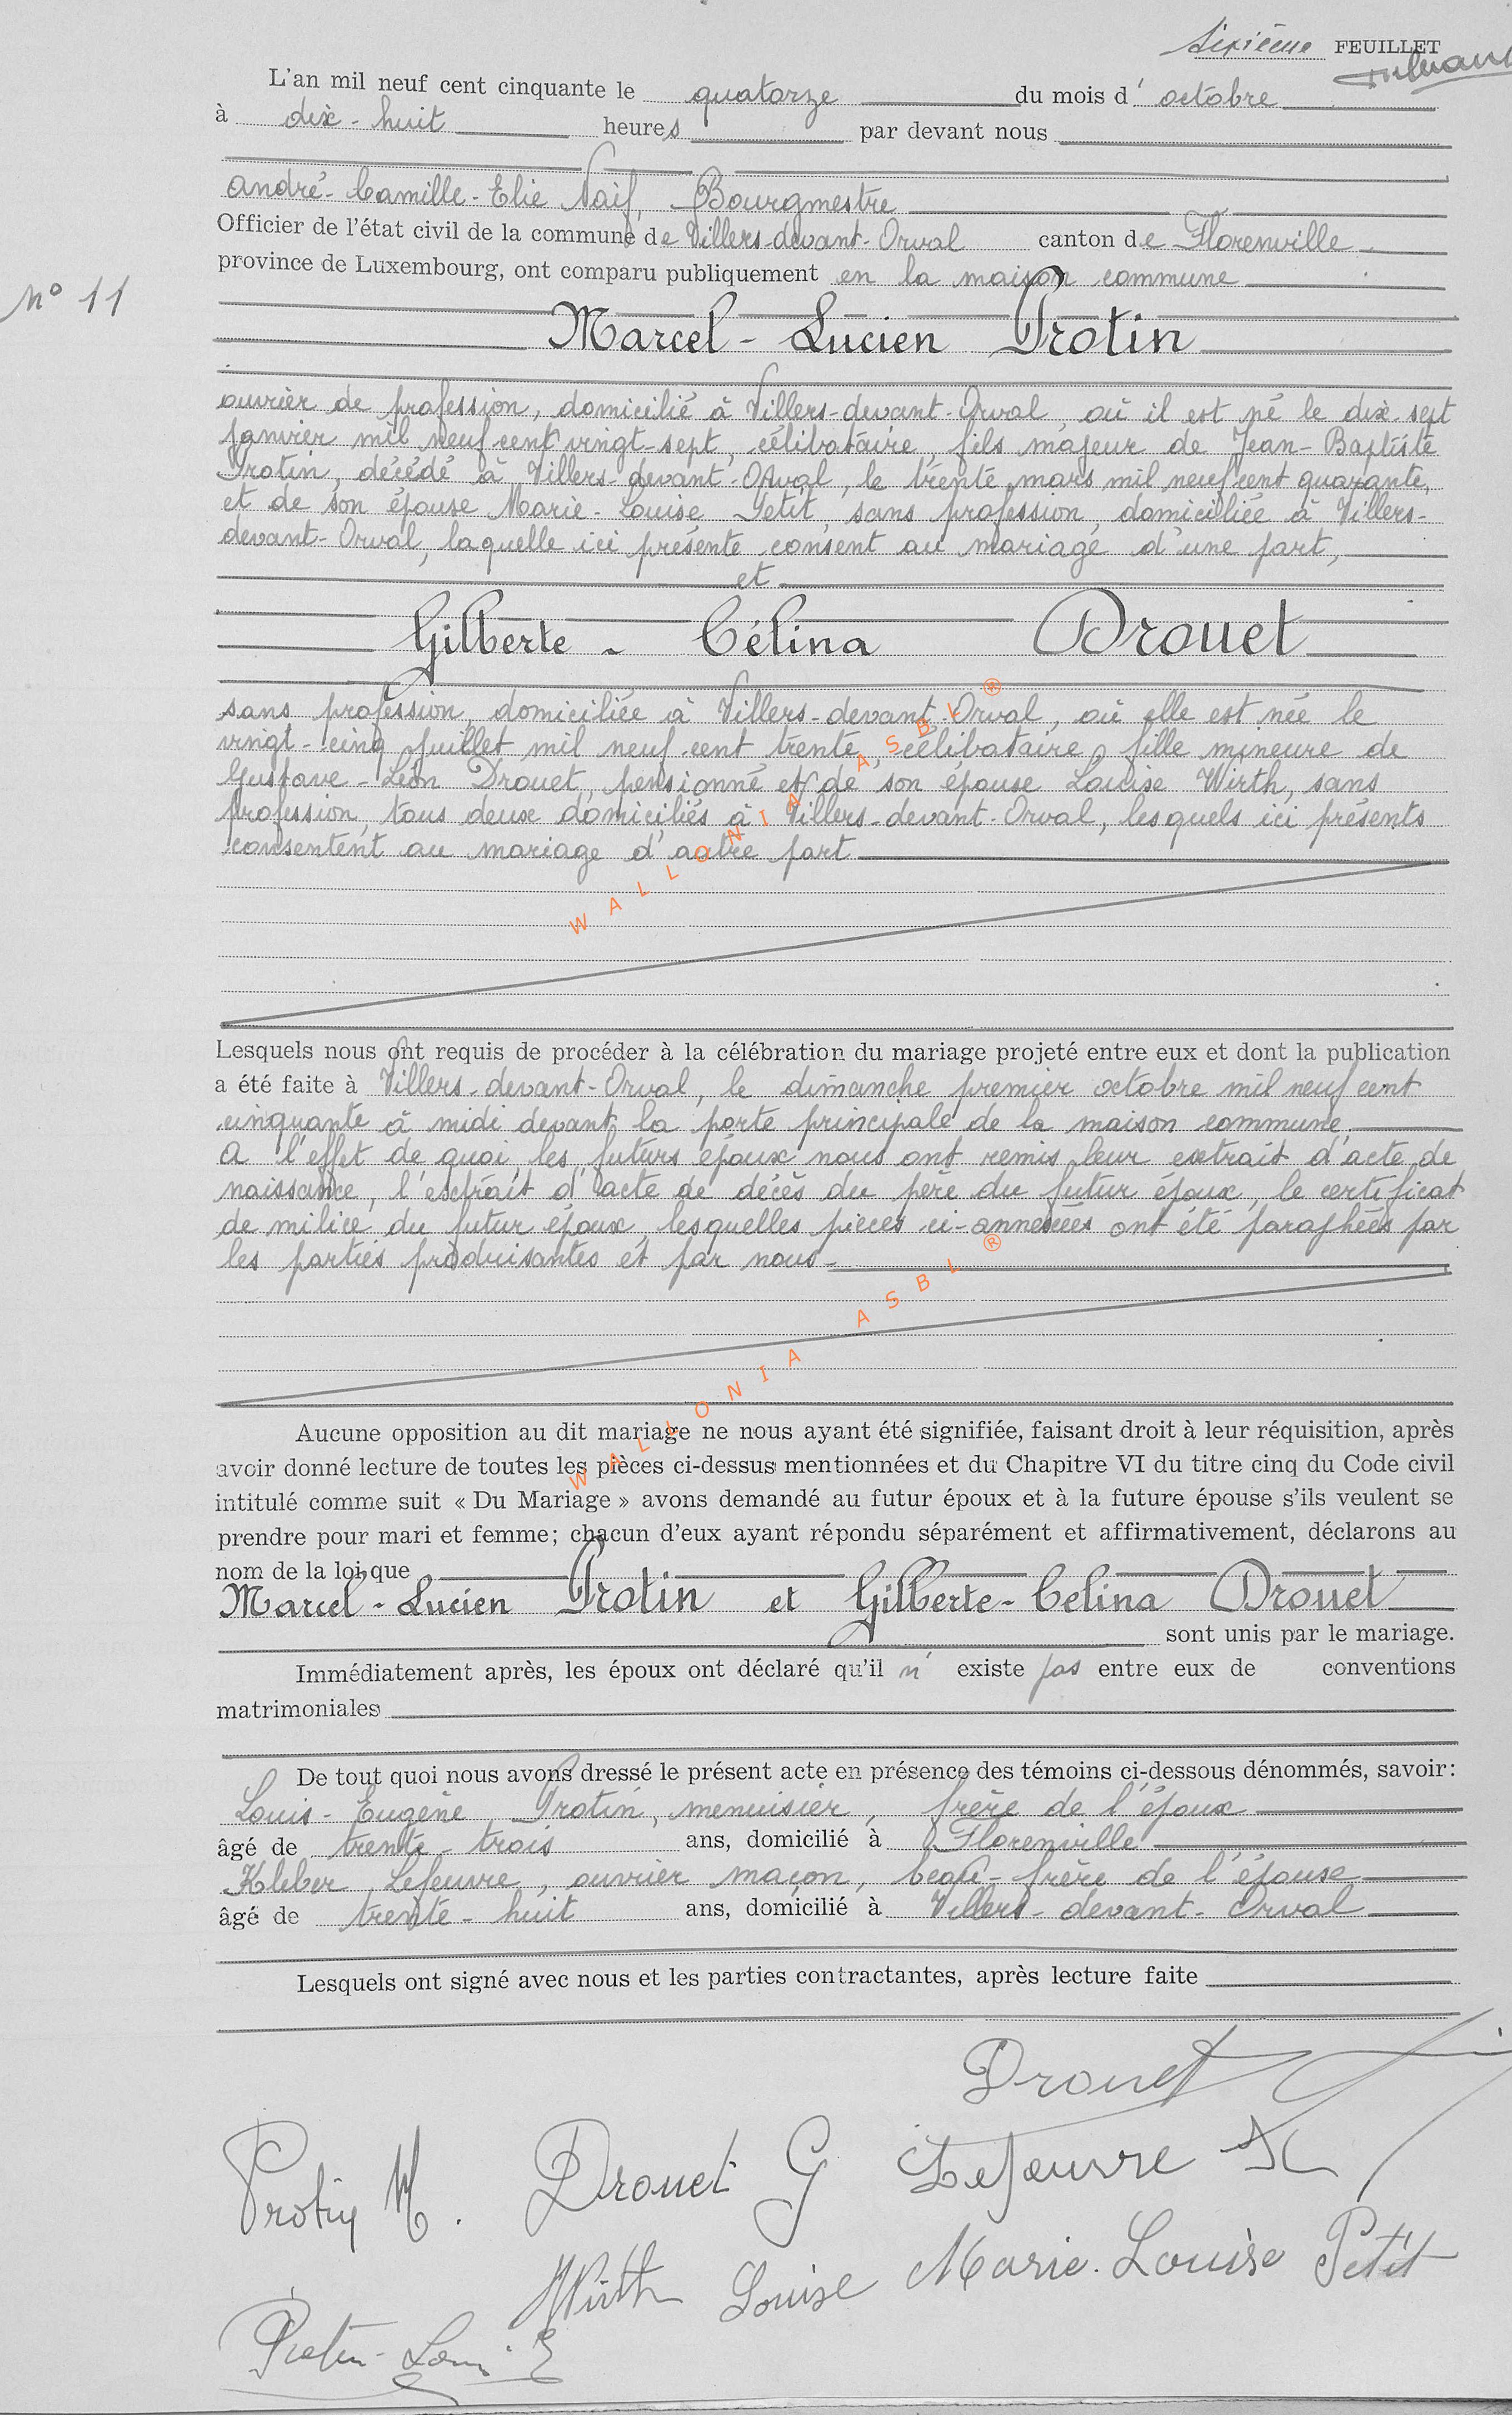 Sixième FEUILLET
L'an mil neuf cent cinquante le quatorze du mois d' octobre
à dix-huit heures par devant nous
André-Camille-Elie Naif, Bourgmestre
Officier de l'état civil de la commune de Villers-devant-Orval canton de Florenville
province de Luxembourg, ont comparu publiquement en la maison commune
N° 11
Marcel-Lucien Protin
ouvrier de profession, domicilié à Villers-devant-Orval, où il est né le dix-sept
janvier mil neuf cent vingt-sept, célibataire, fils majeur de Jean-Baptiste
Protin, décédé à Villers-devant-Orval, le trente mars mil neuf cent quarante,
et de son épouse Marie-Louise Petit, sans profession, domiciliée à Villers-
devant-Orval, laquelle ici présente consent au mariage d'une part,
et
Gilberte-Célina Drouet
sans profession, domiciliée à Villers-devant-Orval, où elle est née le
vingt-cinq juillet mil neuf cent trente, célibataire, fille mineure de
Gustave-Léon Drouet, pensionné et de son épouse Louise Wirth, sans
profession, tous deux domiciliés à Villers-devant-Orval, lesquels ici présents
consentent au mariage d'autre part
WALLONIA ASBL ®
Lesquels nous ont requis de procéder à la célébration du mariage projeté entre eux et dont la publication
a été faite à Villers-devant-Orval, le dimanche premier octobre mil neuf cent
cinquante à midi devant la porte principale de la maison commune.
A l'effet de quoi, les futurs époux nous ont remis leur extrait d'acte de
naissance, l'extrait d'acte de décès du père du futur époux, le certificat
de milice du futur époux, lesquelles pièces ci-annexées ont été paraphées par
les parties produisantes et par nous-
WALLONIA ASBL ®
Aucune opposition au dit mariage ne nous ayant été signifiée, faisant droit à leur réquisition, après
avoir donné lecture de toutes les pièces ci-dessus mentionnées et du Chapitre VI du titre cinq du Code civil
intitulé comme suit « Du Mariage » avons demandé au futur époux et à la future épouse s'ils veulent se
prendre pour mari et femme; chacun d'eux ayant répondu séparément et affirmativement, déclarons au
nom de la loi que
Marcel-Lucien Protin et Gilberte-Celina Drouet
sont unis par le mariage.
Immédiatement après, les époux ont déclaré qu'il n' existe pas entre eux de conventions
matrimoniales
De tout quoi nous avons dressé le présent acte en présence des témoins ci-dessous dénommés, savoir:
Louis-Eugène Protin, menuisier, frère de l'époux
âgé de trente-trois ans, domicilié à Florenville
Kleber Lefeuvre, ouvrier maçon, beau-frère de l'épouse
âgé de trente-huit ans, domicilié à Villers-devant-Orval
Lesquels ont signé avec nous et les parties contractantes, après lecture faite
Drouet
Protin M. Drouet G Lefeuvre K
Wirth Louise Marie-Louise Petit
Protin-Louis E